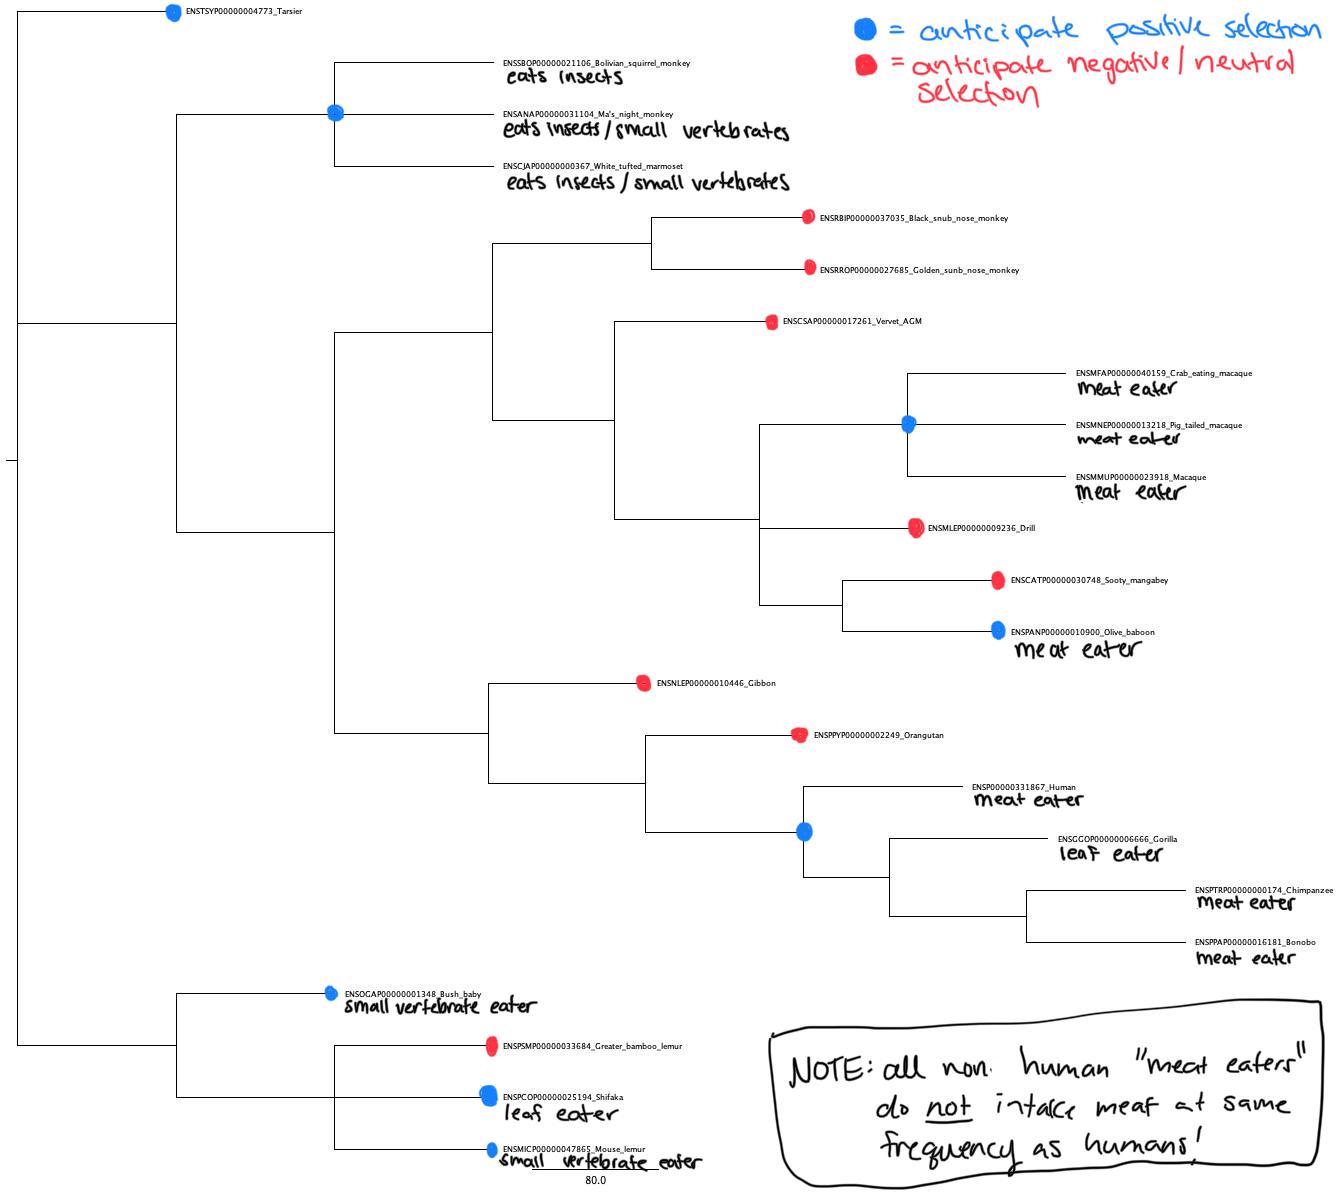 ENSTSYP00000004773_Tarsier
= anticipate positive selection
= anticipate negative/neutral
selection
ENSSBOP00000021106_Bolivian_squirrel_monkey
eats insects
ENSANAP00000031104_Ma's_night_monkey
eats insects/small vertebrates
ENSCJAP00000000367_White_tufted_marmoset
eats insects/small vertebrates
ENSRBIP00000037035_Black_snub_nose_monkey
ENSRROP00000027685_Golden_sunb_nose_monkey
ENSCSAP00000017261_Vervet_AGM
ENSMFAP00000040159_Crab_eating_macaque
meat eater
ENSMNEP00000013218_Pig_tailed_macaque
meat eater
ENSMMUP00000023918_Macaque
meat eater
ENSMLEP00000009236_Drill
ENSCATP00000030748_Sooty_mangabey
ENSPANP00000010900_Olive_baboon
meat eater
ENSNLEP00000010446_Gibbon
ENSPPYP00000002249_Orangutan
ENSP00000331867_Human
meat eater
ENSGGOP00000006666_Gorilla
leaf eater
ENSPTRP00000000174_Chimpanzee
meat eater
ENSPPAP00000016181_Bonobo
meat eater
ENSOGAP00000001348_Bush_baby
small vertebrate eater
ENSPSMP00000033684_Greater_bamboo_lemur
ENSPCOP00000025194_Shifaka
leaf eater
ENSMICP00000047865_Mouse_lemur
small vertebrate eater
80.0
NOTE: all non. human "meat eaters"
do not intake meat at same
frequency as humans!